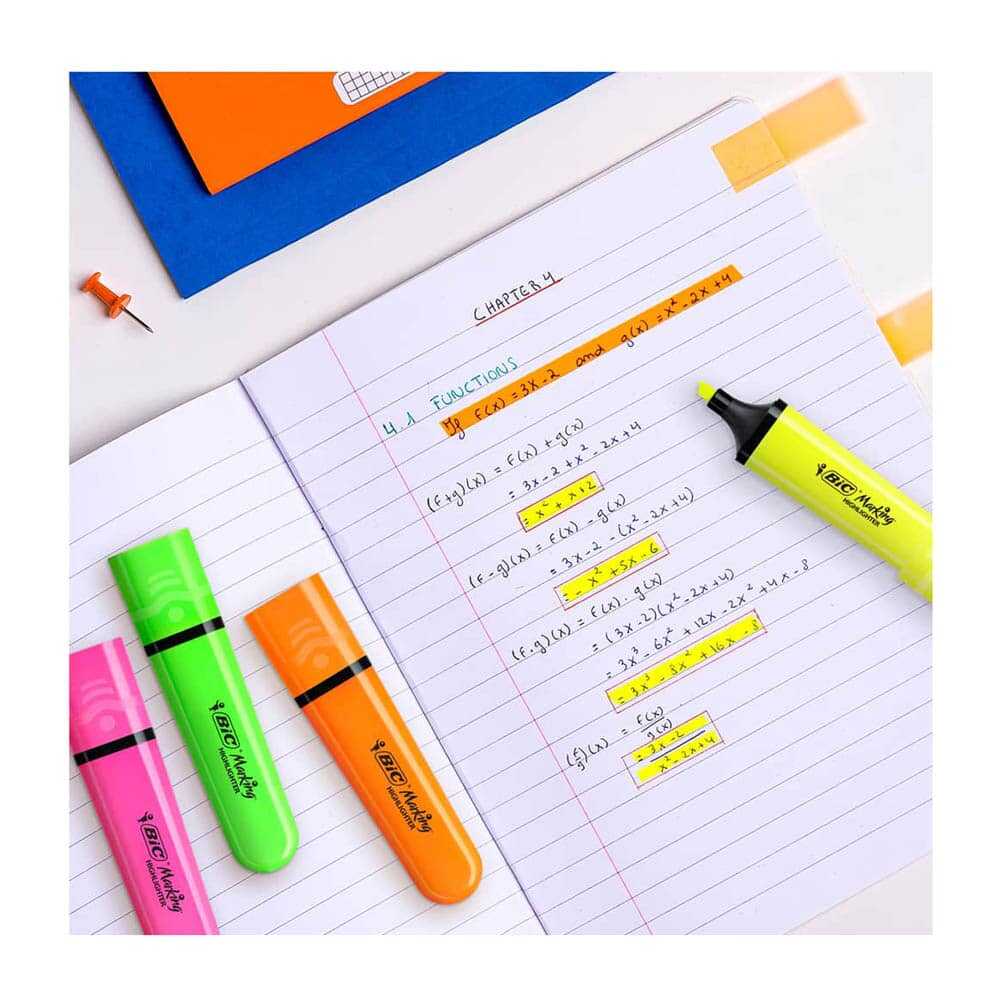 CHAPTER 4
4.1 FUNCTIONS
If f(x) = 3x - 2 and g(x) = x² - 2x + 4
(f+g)(x) = f(x) + g(x)
= 3x - 2 + x² - 2x + 4
= x² + x + 2
(f-g)(x) = f(x) - g(x)
= 3x - 2 - (x² - 2x + 4)
= - x² + 5x - 6
(f.g)(x) = f(x) . g(x)
= (3x - 2)(x² - 2x + 4)
= 3x³ - 6x² + 12x - 2x² + 4x - 8
= 3x³ - 8x² + 16x - 8
(f/g)(x) = f(x)/g(x)
= 3x - 2/x² - 2x + 4
BiC Marking
HIGHLIGHTER
BiC Marking
HIGHLIGHTER
BiC Marking
HIGHLIGHTER
BiC Marking
HIGHLIGHTER